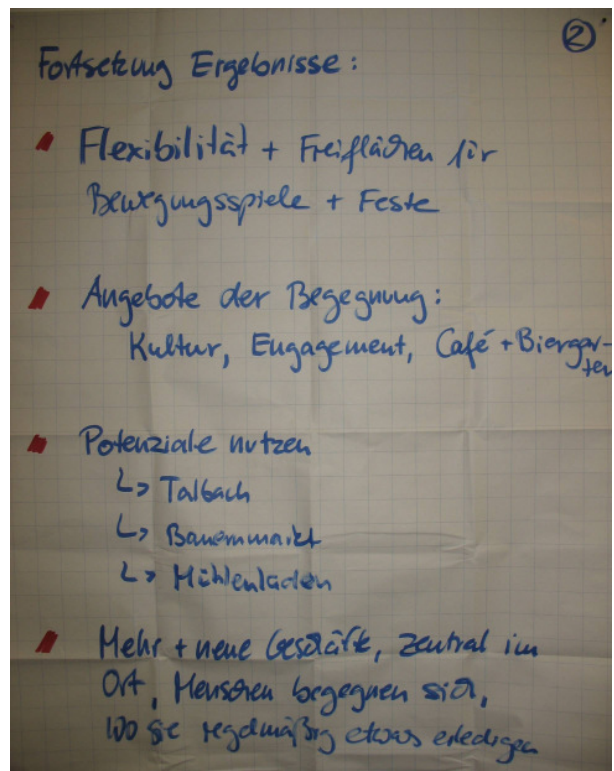 ②
Fortsetzung Ergebnisse:
Flexibilität + Freiflächen für
Bewegungsspiele + Feste
Angebote der Begegnung:
Kultur, Engagement, Café + Biergar-
ten
Potenziale nutzen
↳ Talbach
↳ Bauernmarkt
↳ Mühlenladen
Mehr + neue Geschäfte, zentral im
Ort, Menschen begegnen sich,
wo sie regelmäßig etwas erledigen